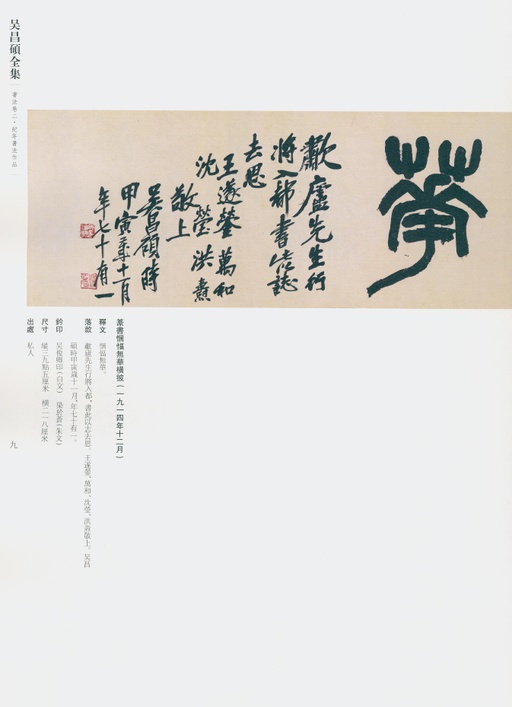 吴昌碩全集
書法卷二·紀年書法作品
華
歗廬先生行
將入都書此誌
去思
王遂鎣 萬和
沈瑩 洪燾
敬上
吴昌碩時
甲寅歲十一月
年七十有一
篆書悃愊無華橫披（一九一四年十二月）
釋文 悃愊無華。
落款 歗廬先生行將入都，書此以志去思。王遂鎣、萬和、沈瑩、洪燾敬上。吴昌
碩時甲寅歲十一月，年七十有一。
鈐印 吴俊卿印（白文）
尺寸 縱三九點五厘米 橫二一八厘米
出處 私人
九